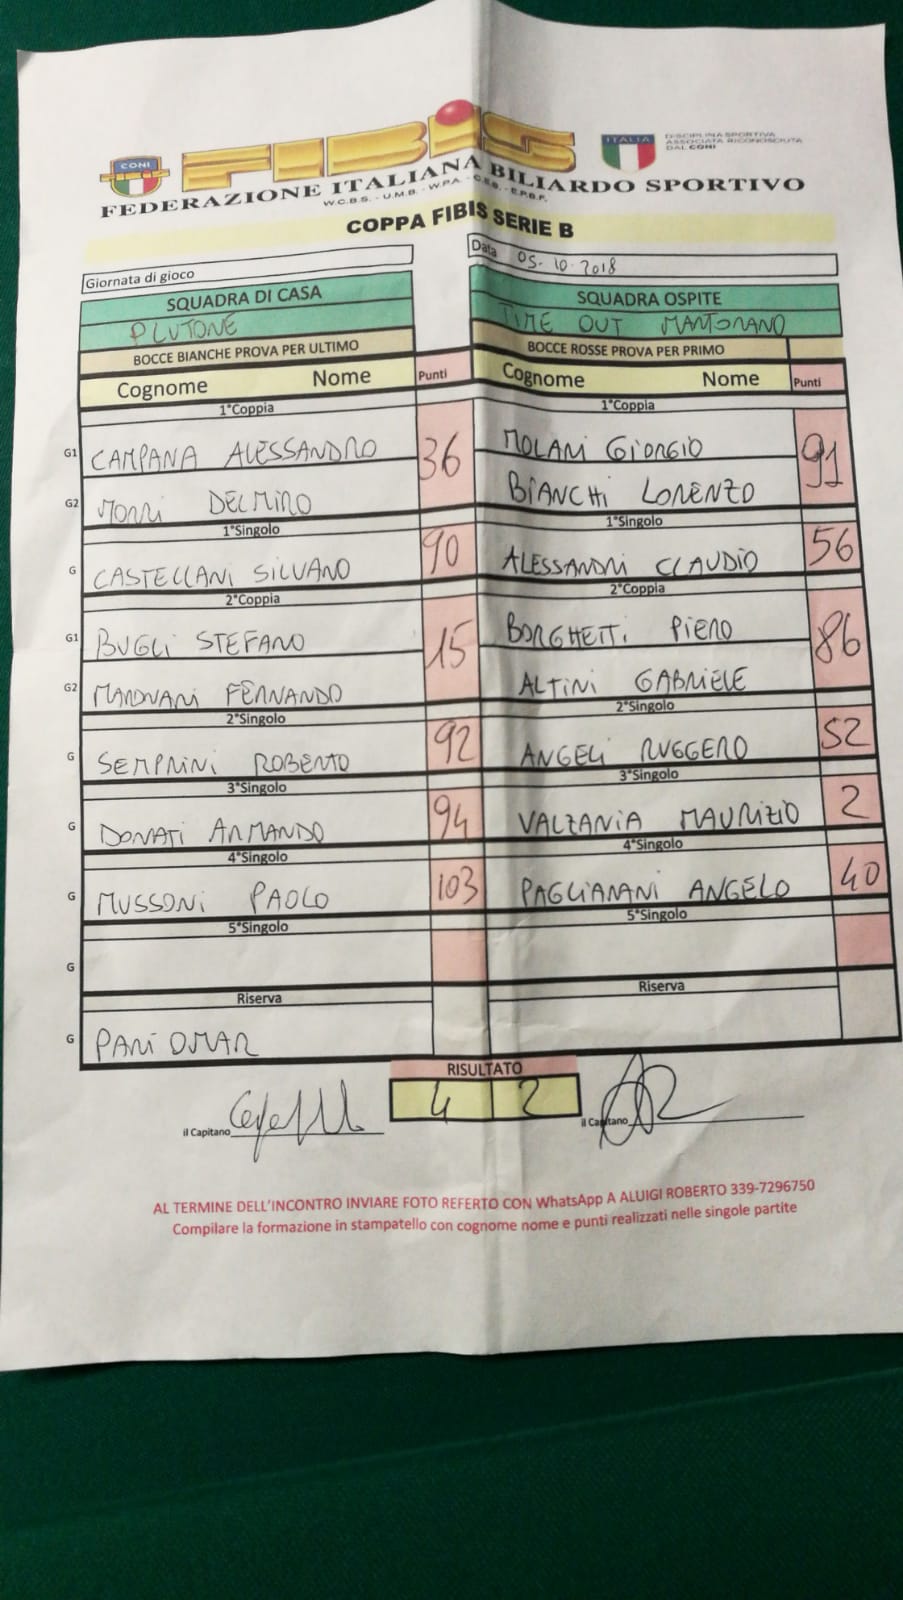 CONI
FIBiS
ITALIA
DISCIPLINA SPORTIVA
ASSOCIATA RICONOSCIUTA
DAL CONI
FEDERAZIONE ITALIANA BILIARDO SPORTIVO
W.C.B.S. - U.M.B. - W.P.A. - C.E.B. - E.P.B.F.
COPPA FIBIS SERIE B
Giornata di gioco
Data 05-10-2018
SQUADRA DI CASA SQUADRA OSPITE
PLUTONE TIME OUT MARTORANO
BOCCE BIANCHE PROVA PER ULTIMO BOCCE ROSSE PROVA PER PRIMO
Cognome Nome Punti Cognome Nome Punti
1°Coppia 1°Coppia
G1 CAMPANA ALESSANDRO 36 MOLARI GIORGIO 91
G2 MORRI DELMIRO BIANCHI LORENZO
1°Singolo 1°Singolo
G CASTELLANI SILVANO 90 ALESSANDRI CLAUDIO 56
2°Coppia 2°Coppia
G1 BUGLI STEFANO 15 BORGHETTI PIERO 86
G2 FERNANDO ALTINI GABRIELE
2°Singolo 2°Singolo
G SEMPRINI ROBERTO 92 ANGELI RUGGERO 52
3°Singolo 3°Singolo
G DONATI ARMANDO 94 VALZANIA MAURIZIO 2
4°Singolo 4°Singolo
G MUSSONI PAOLO 103 PAGLIARANI ANGELO 40
5°Singolo 5°Singolo
G
Riserva Riserva
G PARI OMAR
RISULTATO
4 2
il Capitano il Capitano
AL TERMINE DELL'INCONTRO INVIARE FOTO REFERTO CON WhatsApp A ALUIGI ROBERTO 339-7296750
Compilare la formazione in stampatello con cognome nome e punti realizzati nelle singole partite